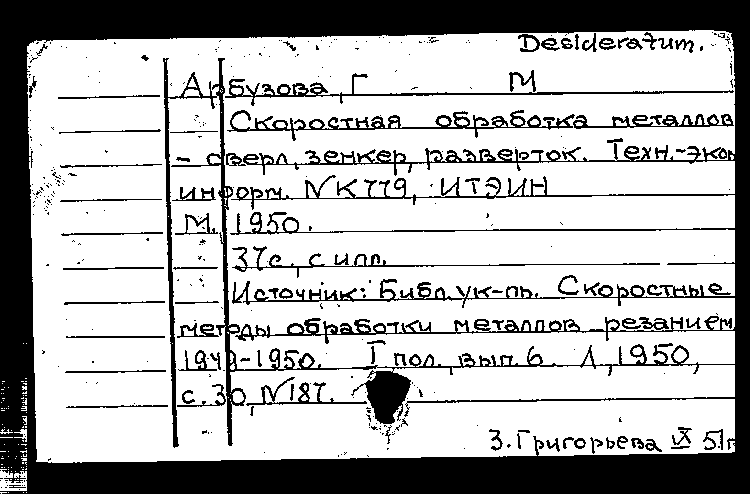 Desideratum.
Арбузова, Г М
Скоростная обработка металлов
- сверл, зенкер, разверток. Техн.-экон
информ. № К779, ИТЭИН
М. 1950.
37с., с илл.
Источник: Библ. ук-ль. Скоростные
методы обработки металлов резанием
1949-1950. I пол., вып. 6. Л., 1950,
с. 30, № 187.
З. Григорьева IX 51г